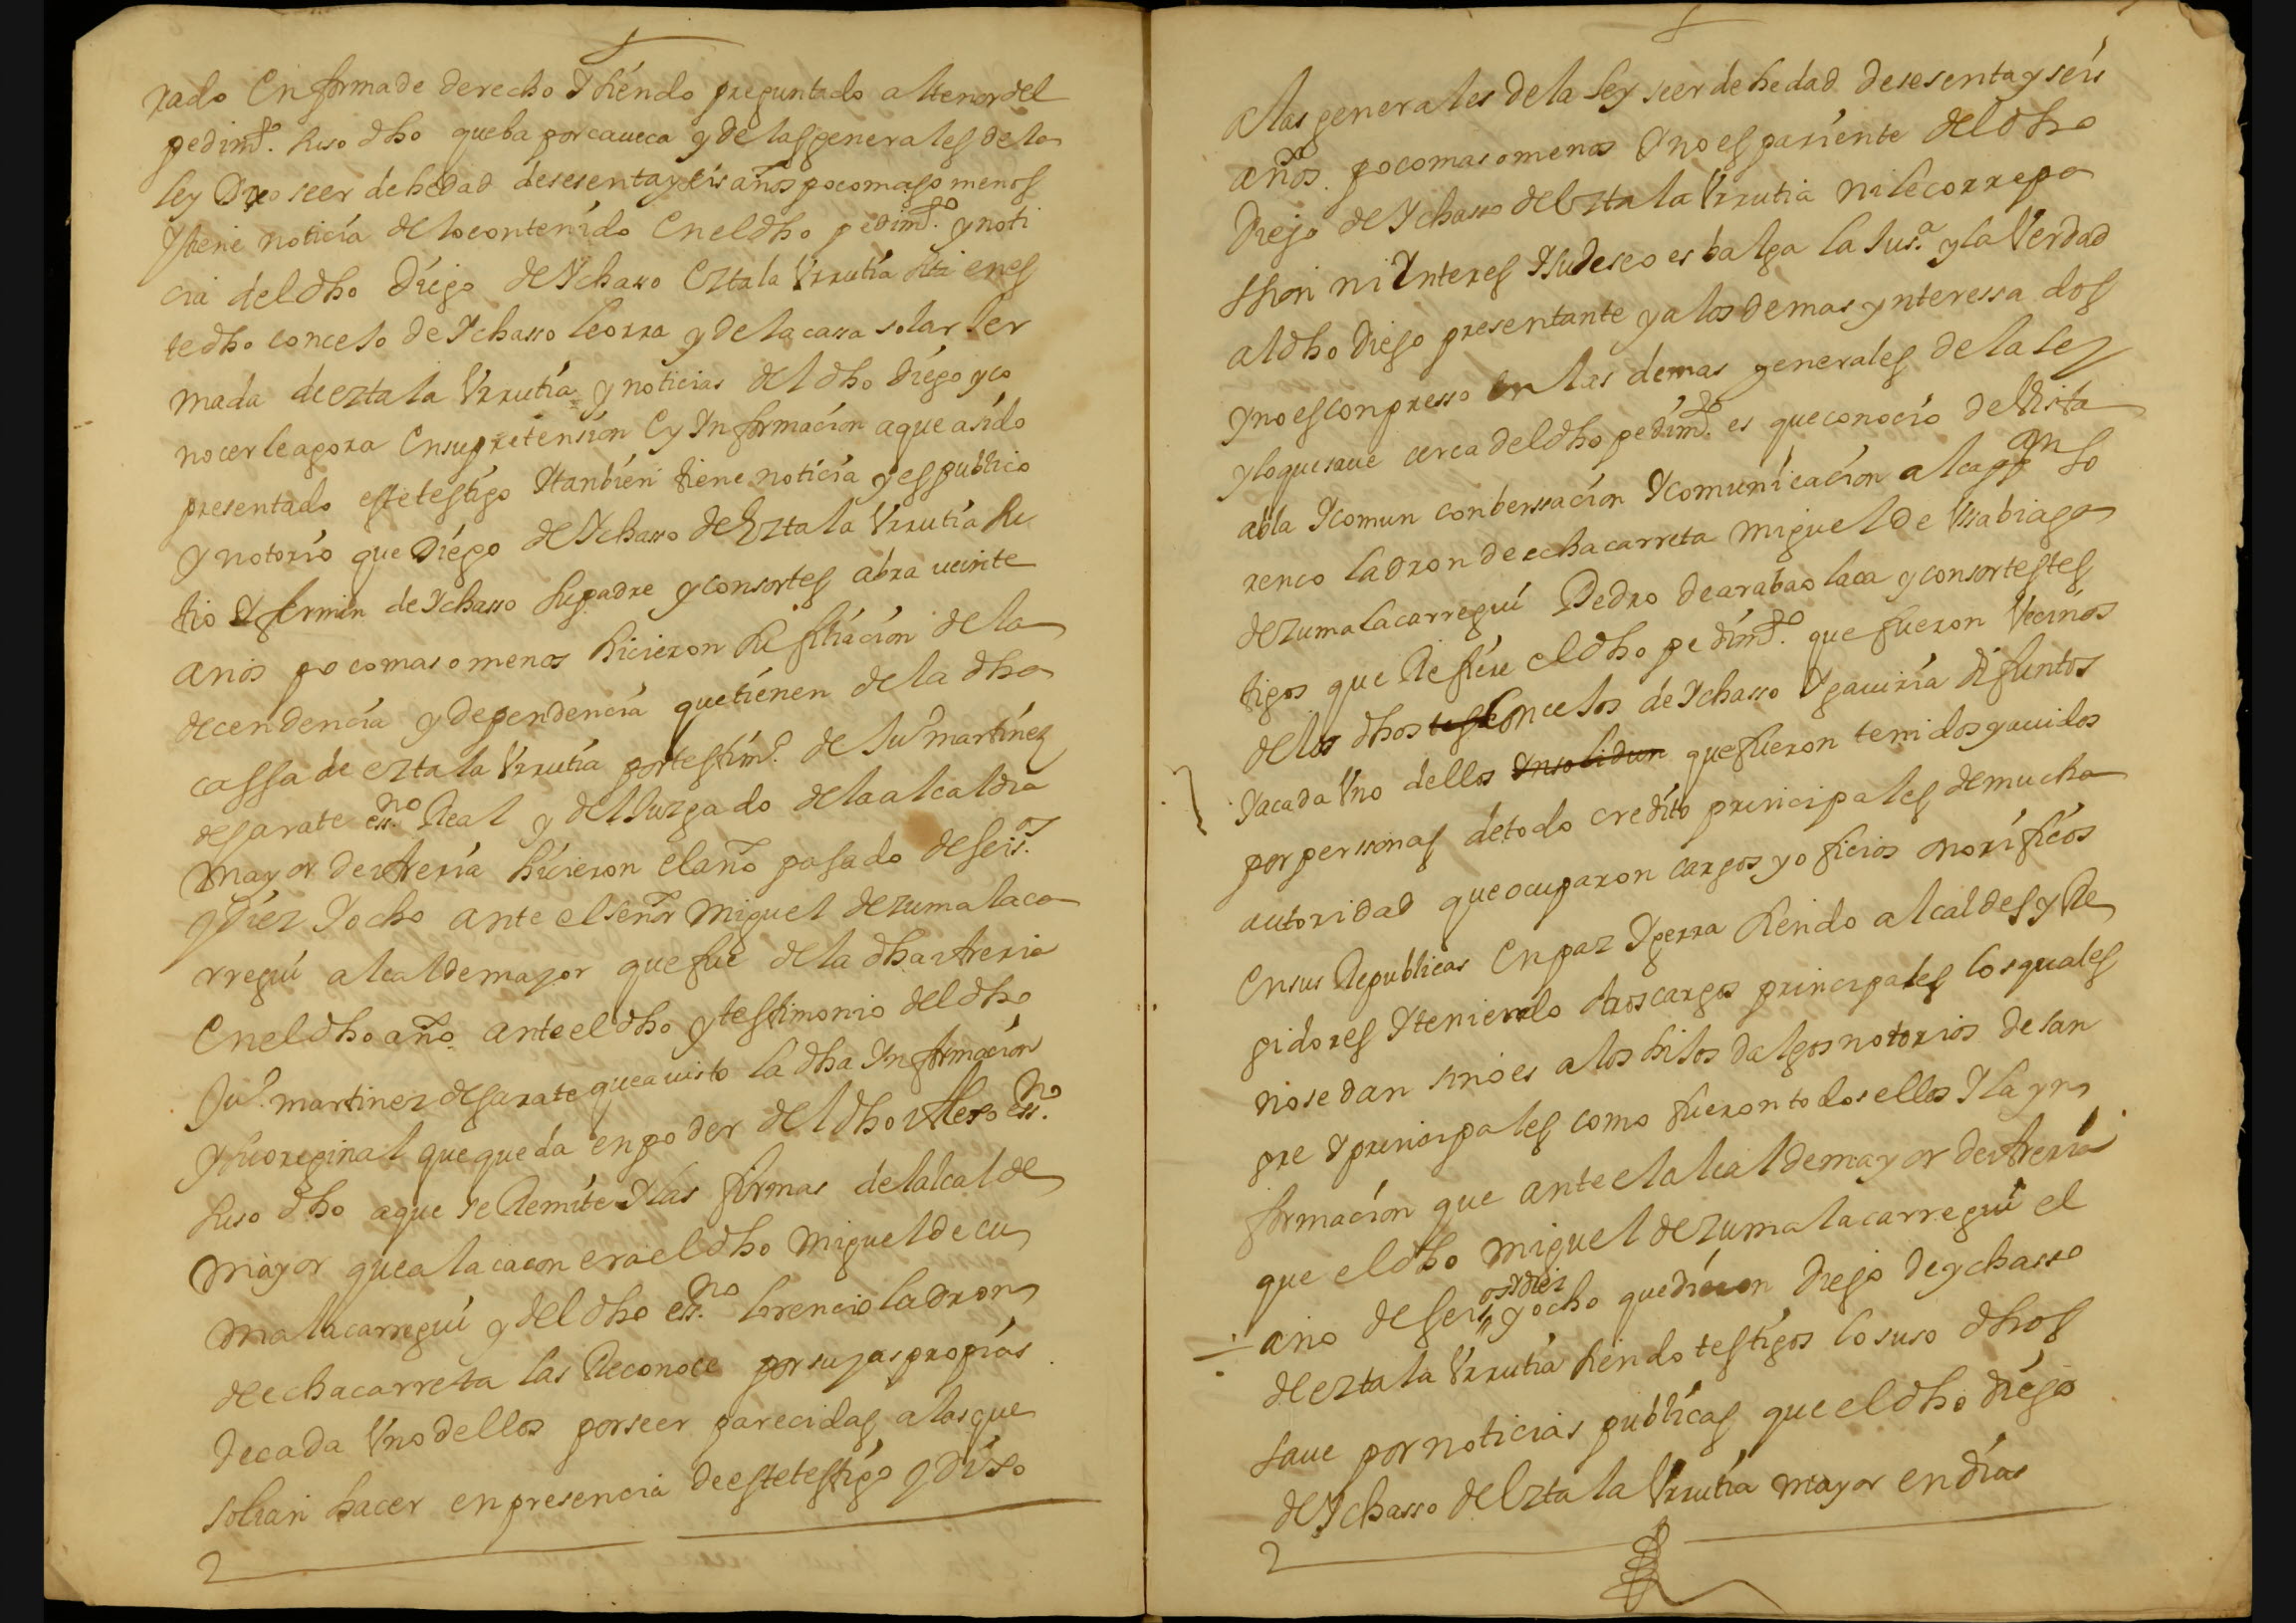 rado En forma de derecho Y siendo preguntado al tenor del
pedimto. suso dho que ba por caueca y de las generales de la
ley Dixo seer de hedad de sesenta y seis años poco mas o menos
Y tiene noticia de lo contenido En el dho pedimto. y noti
cia del dho Diego de Ychasso Eztala Vrrutia en es
te dho concejo de Ychasso y de la cassa solar ler
mada de eztala Vrrutia y noticias del dho Diego y co
nocerle agora En su pretension Ey Informacion a que a sido
presentado este testigo Y tanbien tiene noticia y es publico
Y notorio que Diego de Ychasso de Eztala Vrrutia su
tio Y fermin de Ychasso su padre y consortes abra ueinte
anos poco mas o menos hicieron su filiacion de la
decendencia y dependencia que tienen de la dha
cassa de eztala Vrrutia por testimo. de Juo martinez
de sarate essno. Real y del Juzgado de la alcaldia
mayor de Areria hicieron el año pasado de seisos.
y diez Y ocho ante el señor Miguel de zumalaca
rregui alcalde mayor que fue de la dha Areria
En el dho año ante el dho y testimonio del dho
Juo. martinez de sarate que a uisto la dha Informacion
Y su oreginal que queda en poder del dho essno.
suso dho a que se Remite Y las firmas del alcalde
mayor que a la cacon era el dho Miguel de cu
malacarregui y del dho essno. lorencio ladron
de echacarreta las Reconoce por suyas propias
de cada Vno dellos por seer parecidas a las que
solian hacer en presencia de este testigo y dixo
a las generales de la ley seer de hedad de sesenta y seis
años. poco mas o menos Y no es pariente del dho
Diego de Ychasso de Eztala Vrrutia ni le corre pa
ssion ni Ynteres Y su deseo es balga la Jusa. y la Verdad
al dho Diego presentante y a los demas ynteressados
Y no es conpresso en las demas generales de la ley
y lo que saue cerca del dho pedimto. es que conocio de Vista
abla Y comun conberssacion Y comunicacion al cappn lo
renco ladron de echacarreta Miguel de Vsabiaga
de zumalacarregui Pedro de arabaolaca y consortes tes
tigos que Refiere el dho pedimto. que fueron Vecinos
de los dhos concejos de Ychasso Y gauiria difuntos
Y a cada Vno dellos Ynsolidun que fueron tenidos y auidos
por personas de todo credito principales de mucha
autoridad que ocuparon cargos y oficios onorificos
En sus Republicas En paz Y gerra siendo alcaldes y Re
gidores Y teniendo otros cargos principales los quales
no se dan sino es a los hijos dalgos notorios de san
gre Y principales como fueron todos ellos Y la yn
formacion que ante el alcalde mayor de Areria
que el dho Miguel de zumalacarregui el
ano de seisos y diez y ocho que dieron Diego de ychasso
de eztala Vrrutia siendo testigos lo suso dhos
saue por noticias publicas que el dho diego
de Ychasso de Eztala Vrrutia mayor en dias